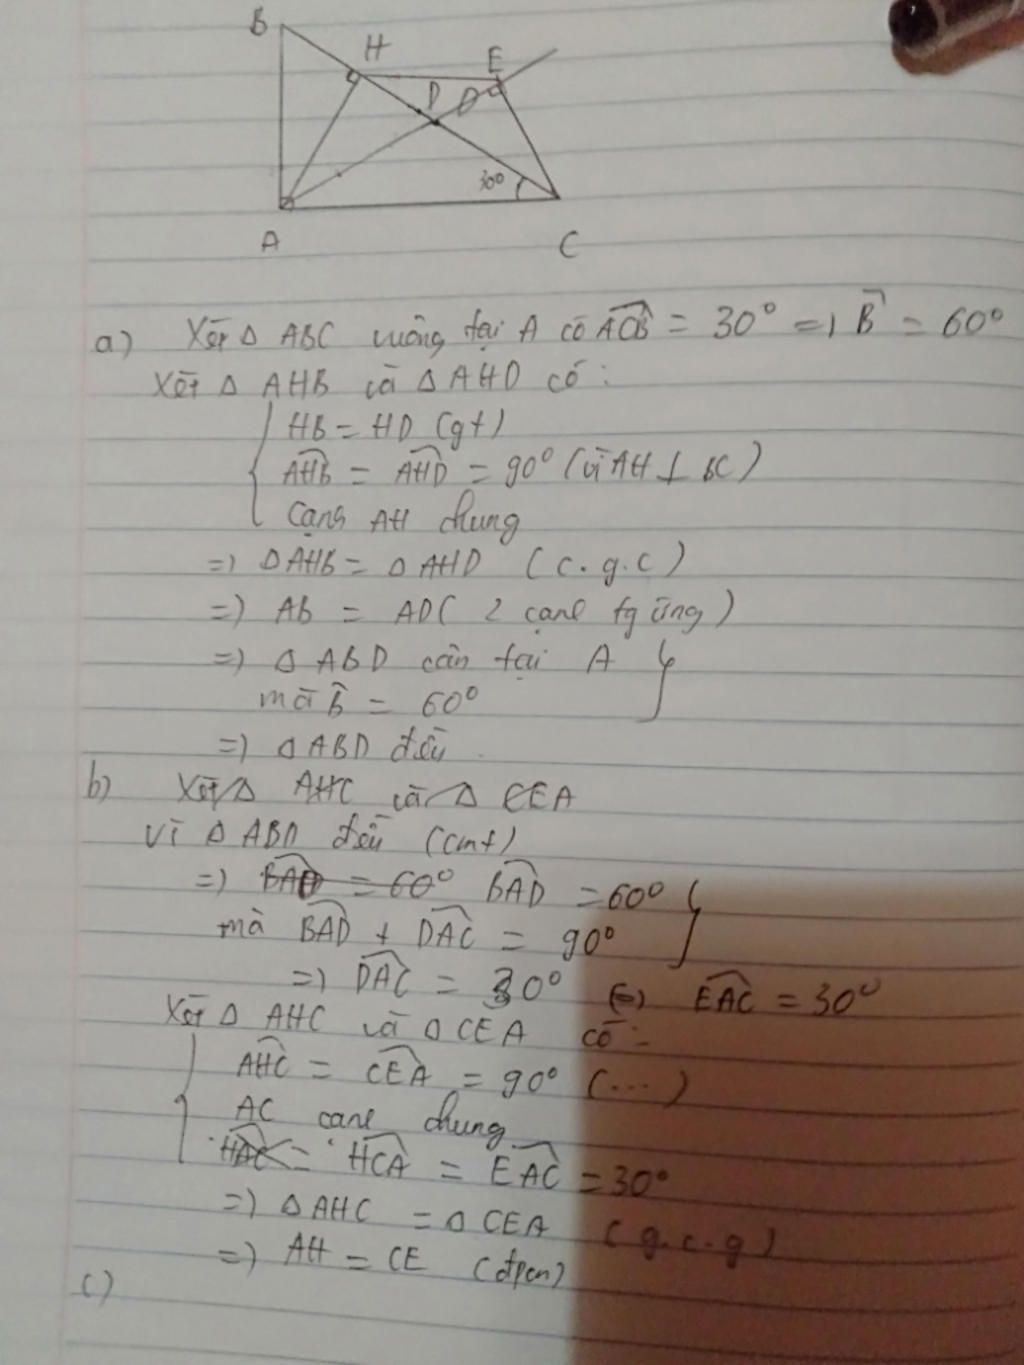 B
H
E
D
30°
A
C
a) Xét Δ ABC vuông tại A có ACB = 30° => B = 60°
Xét Δ AHB và Δ AHD có:
HB = HD (gt)
AHB = AHD = 90° (vì AH ⊥ BC)
Cạnh AH chung
=> Δ AHB = Δ AHD (c.g.c)
=> AB = AD ( 2 cạnh tg ứng )
=> Δ ABD cân tại A
mà B = 60°
=> Δ ABD đều.
b) Xét Δ AHC và Δ CEA
Vì Δ ABD đều (cmt)
=> BAD = 60° BAD = 60°
mà BAD + DAC = 90°
=> DAC = 30° (=) EAC = 30°
Xét Δ AHC và Δ CEA có:
AHC = CEA = 90° (...)
AC cạnh chung
HAC = HCA = EAC = 30°
=> Δ AHC = Δ CEA (g.c.g)
=> AH = CE (đpcm)
c)